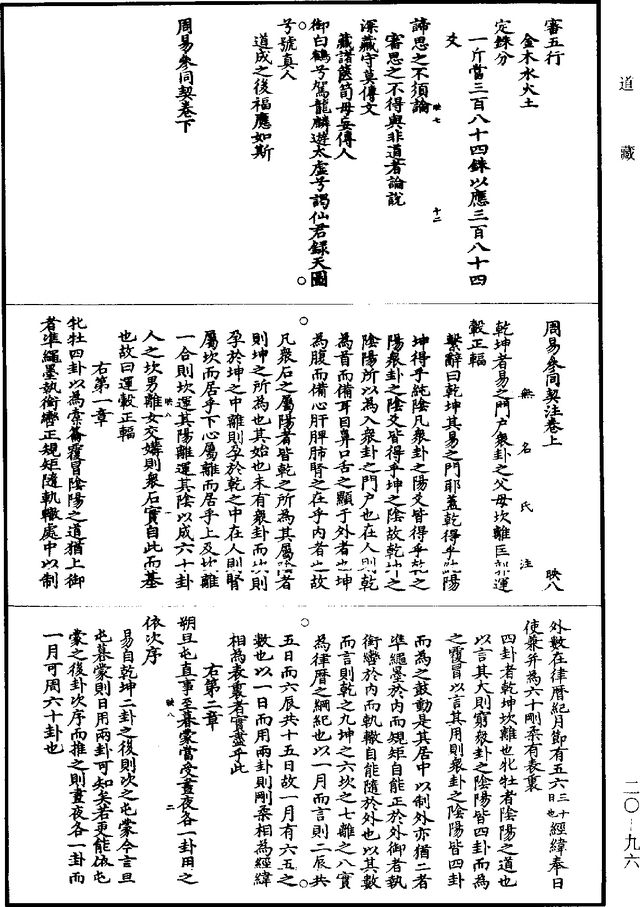 道藏
審五行
金木水火土
定銖分
一斤當三百八十四銖以應三百八十四
爻
諦思之不須論
審思之不得與非道者論說
深藏守莫傳文
藏諸篋笥毋妄傳人
御白鶴兮駕龍麟遊太虛兮謁仙君錄天圖
兮號真人
道成之後福應如斯
周易參同契卷下
映七
十二
周易參同契注卷上
無名氏注
映八
乾坤者易之門戶衆卦之父母坎離匡郭運
轂正輻
繫辭曰乾坤其易之門耶蓋乾得乎純陽
坤得乎純陰凡衆卦之陽爻皆得乎乾之
陽衆卦之陰爻皆得乎坤之陰故乾坤之
陰陽所以為入衆卦之門戶也在人則乾
為首而備耳目鼻口舌之顯于外者也坤
為腹而備心肝脾肺腎之在乎內者也故
凡衆石之屬陽者皆乾之所為其屬陰者
則坤之所為也其始也未有衆卦而坎則
孕於坤之中離則孕於乾之中在人則腎
屬坎而居乎下心屬離而居乎上及坎離
一合則坎運其陽離運其陰以成六十卦
人之坎男離女交媾則衆石實自此而基
也故曰運轂正輻
右第一章
牝牡四卦以為橐籥覆冒陰陽之道猶上御
者準繩墨執銜轡正規矩隨軌轍處中以制
映八
外數在律曆紀月節有五六三十日也經緯奉日
使兼并為六十剛柔有表裏
四卦者乾坤坎離也牝牡者陰陽之道也
以言其大則窮衆卦之陰陽皆四卦而為
之覆冒以言其用則衆卦之陰陽皆四卦
而為之鼓動是其居中以制外亦猶二者
準繩墨於內而規矩自能正於外御者執
銜轡於內而軌轍自能隨於外也以其數
而言則乾之九坤之六坎之七離之八實
為律曆之綱紀也以一月而言則二辰共
五日而六辰共十五日故一月有六五之
數也以一日而用兩卦則剛柔相為經緯
相為表裏者實盡乎此
右第二章
朔旦屯直事至暮蒙當受晝夜各一卦用之
依次序
易自乾坤二卦之後則次之屯蒙今言旦
屯暮蒙則日用兩卦可知矣若更能依屯
蒙之後卦次序而推之則晝夜各一卦而
一月可周六十卦也
映八
二
二〇-九六